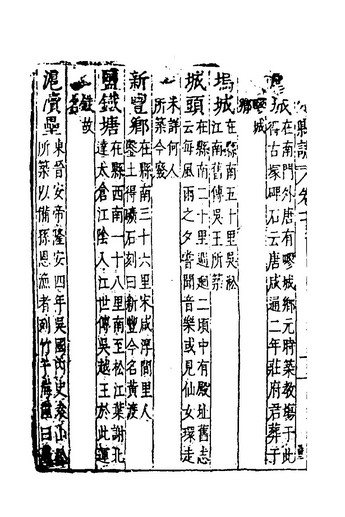 城在南門外唐有疁城鄉元時築教塲于此
得古塚碑石云唐咸通二年莊府君葬于
疁城
鄉
塢城在縣南五十里吳松
江南舊傳吳王所築
城頭在縣南二十里週迴二頃中有殿址舊志
云每風雨之夕昔聞音樂或見仙女環走
未詳何人
所築今廢
新豐鄉在縣南三十六里宋咸淳間里人
鑿土得磚石刻曰新豐今名黃渡
鹽鐵塘在縣西南一十八里南至松江葉謝北
達太倉江陰入江世傳吳越王於此運
鐵故
名
滬瀆壘東晉安帝隆安四年吳國內史袁山松
所築以備孫恩漁者列竹于海